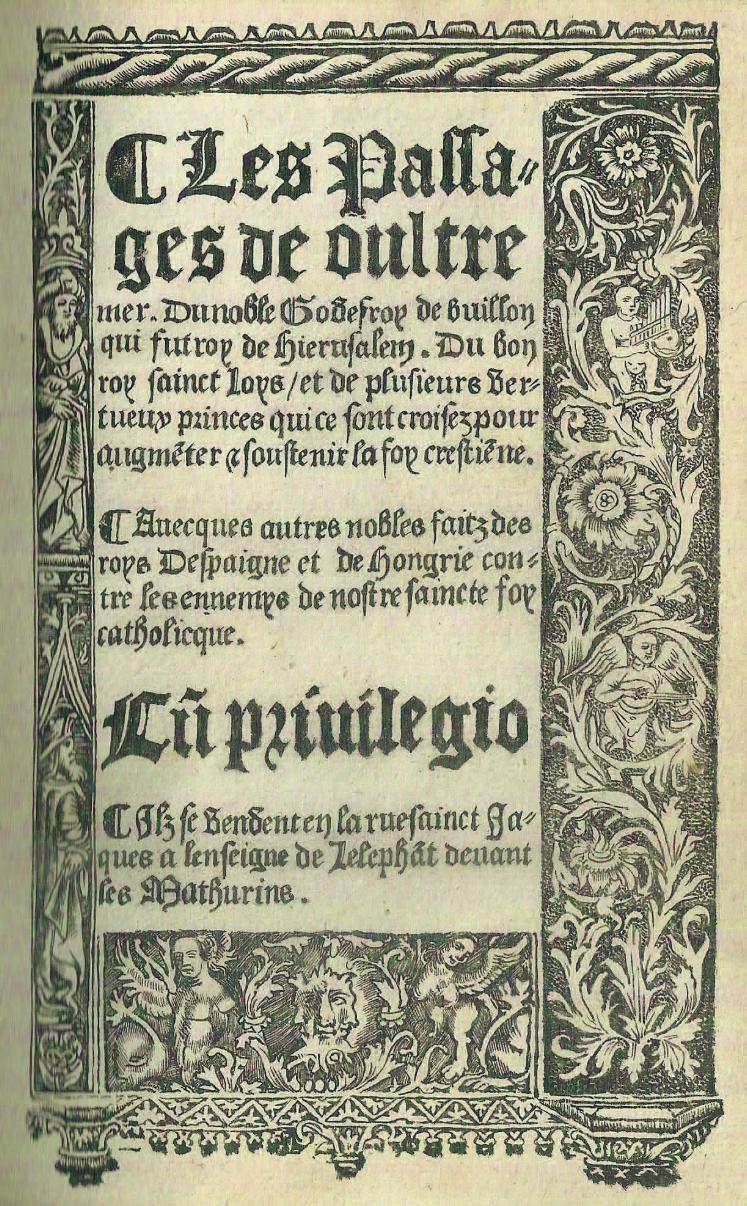 ¶ Les Passa⸗
ges de oultre
mer. Du noble Godefroy de buillon
qui fut roy de Hierusalem. Du bon
roy sainct Loys/et de plusieurs ver⸗
tueux princes qui ce sont croisez pour
augmẽter ⁊ soustenir la foy crestiẽne.
¶ Auecques autres nobles faitz des
roys Despaigne et de Hongrie con⸗
tre les ennemys de nostre saincte foy
catholicque.
Cũ priuilegio
¶ Ilz se vendent en la rue sainct Ja⸗
ques a lenseigne de Lelephãt deuant
les Mathurins.